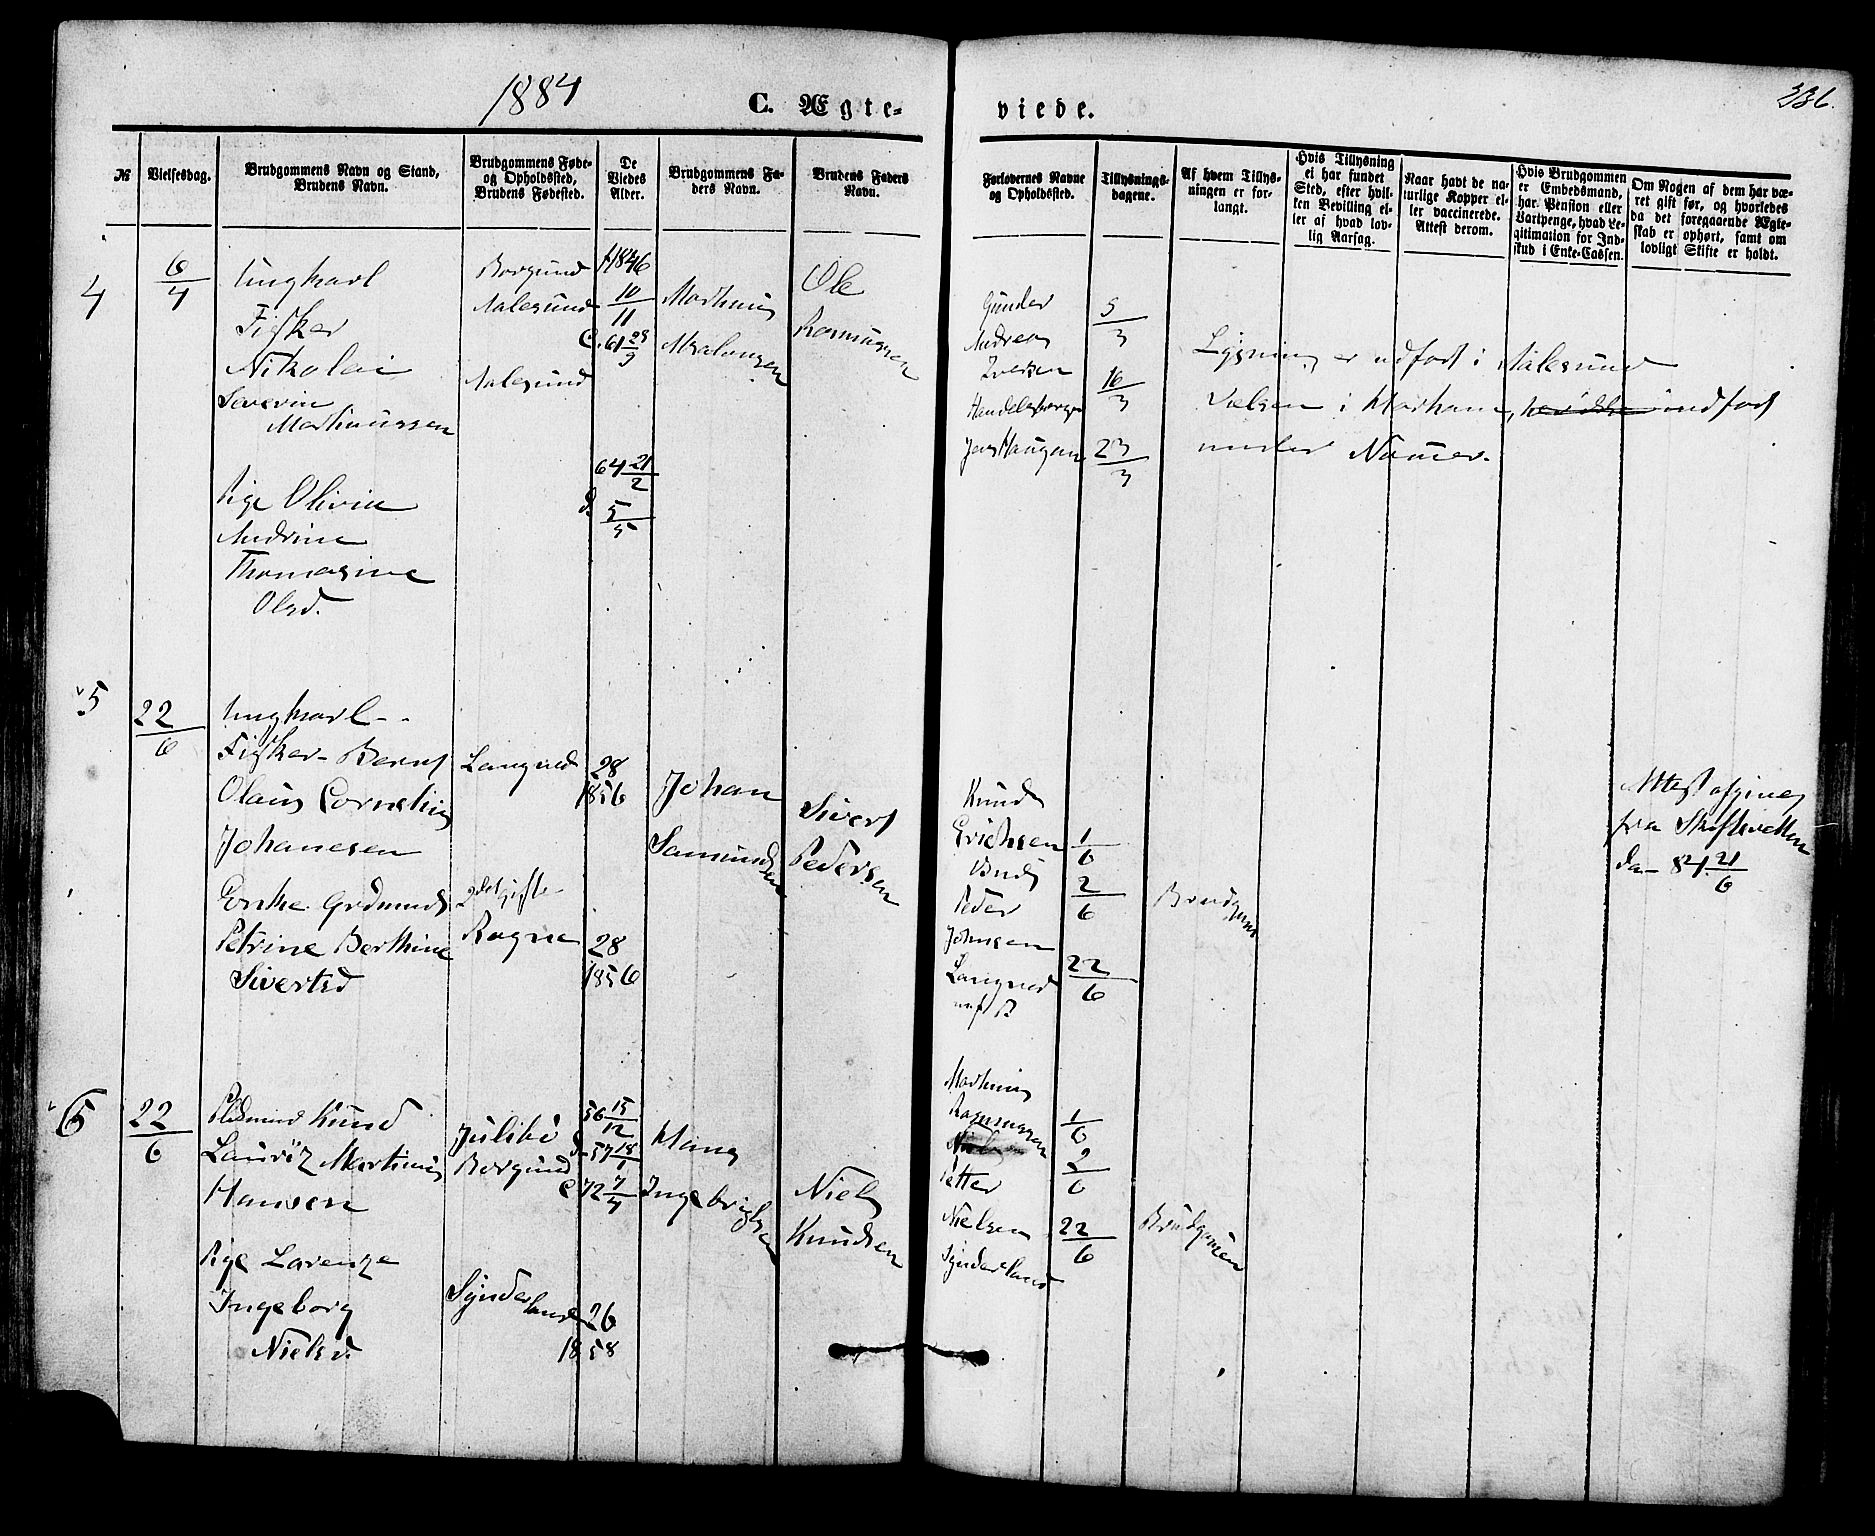 1884
C. Ægte-
viede.
336.
№
Vielsesdag.
Brudgommens Navn og Stand,
Brudens Navn.
Brudgommens Føde-
og Opholdssted,
Brudens Fødested.
De
Viedes
Alder.
Brudgommens Fa-
ders Navn.
Brudens Faders
Navn.
Forlovernes Navne
og Opholdssted.
Tillysnings-
dagene.
Af hvem Tillys-
ningen er for-
langt.
Hvis Tillysning
ei har fundet
Sted, efter hvil-
ken Bevilling el-
ler af hvad lov-
lig Aarsag.
Naar havt de na-
turlige Kopper el-
ler vaccinerede.
Attest derom.
Hvis Brudgommen
er Embedsmand,
har Pension eller
Vartpenge, hvad Le-
gitimation for Ind-
skud i Enke-Cassen.
Om Nogen af dem har væ-
ret gift før, og hvorledes
da det foregaaende Ægte-
skab er ophørt, samt om
lovligt Skifte er holdt.
4
6/4
Ungkarl
Fisker
Nikolai
Severin
Mathiussen
Rige Olivia
Andrine
Thomasine
Olsd.
Borgund
Aalesund
Aalesund
1846
10/11
61 23/9
64 21/2
5/5
Mathius
Ole
Rasmussen
Gunder
Andreas
Iversen
Handelsborger
5/3
16/3
23/3
Lysning er udført i Aalesund
Vielsen i Harham, her ikke indført
under Numer.
5
22/6
Ungkarl
Fisker Bernt
Olaus Cornelius
Johanesen
Enke Gudmunds
Petrine Berthine
Sivertsd
Langned
2det Gifte
Rogne
28
1856
28
1856
Johan
Samundsen
Sivert
Pedersen
Knud
Erichsen
Peder
Johnsen
Langned
1/6
2/6
22/6
Attest afgivet
fra Skifteretten
da 84 21/6
6
22/6
Knud
Lauritz Martinus
Hansen
Pige Lorenze
Ingeborg
Nielsd.
Julibø
Borgund
Synderland
56 15/12
57 18/1
72 7/4
26
1858
Hans
Ingebrigtsen
Niels
Knudsen
Mathius
Rasmussen
Petter
Nielsen
Synderland
1/6
2/6
22/6
Brudgomen